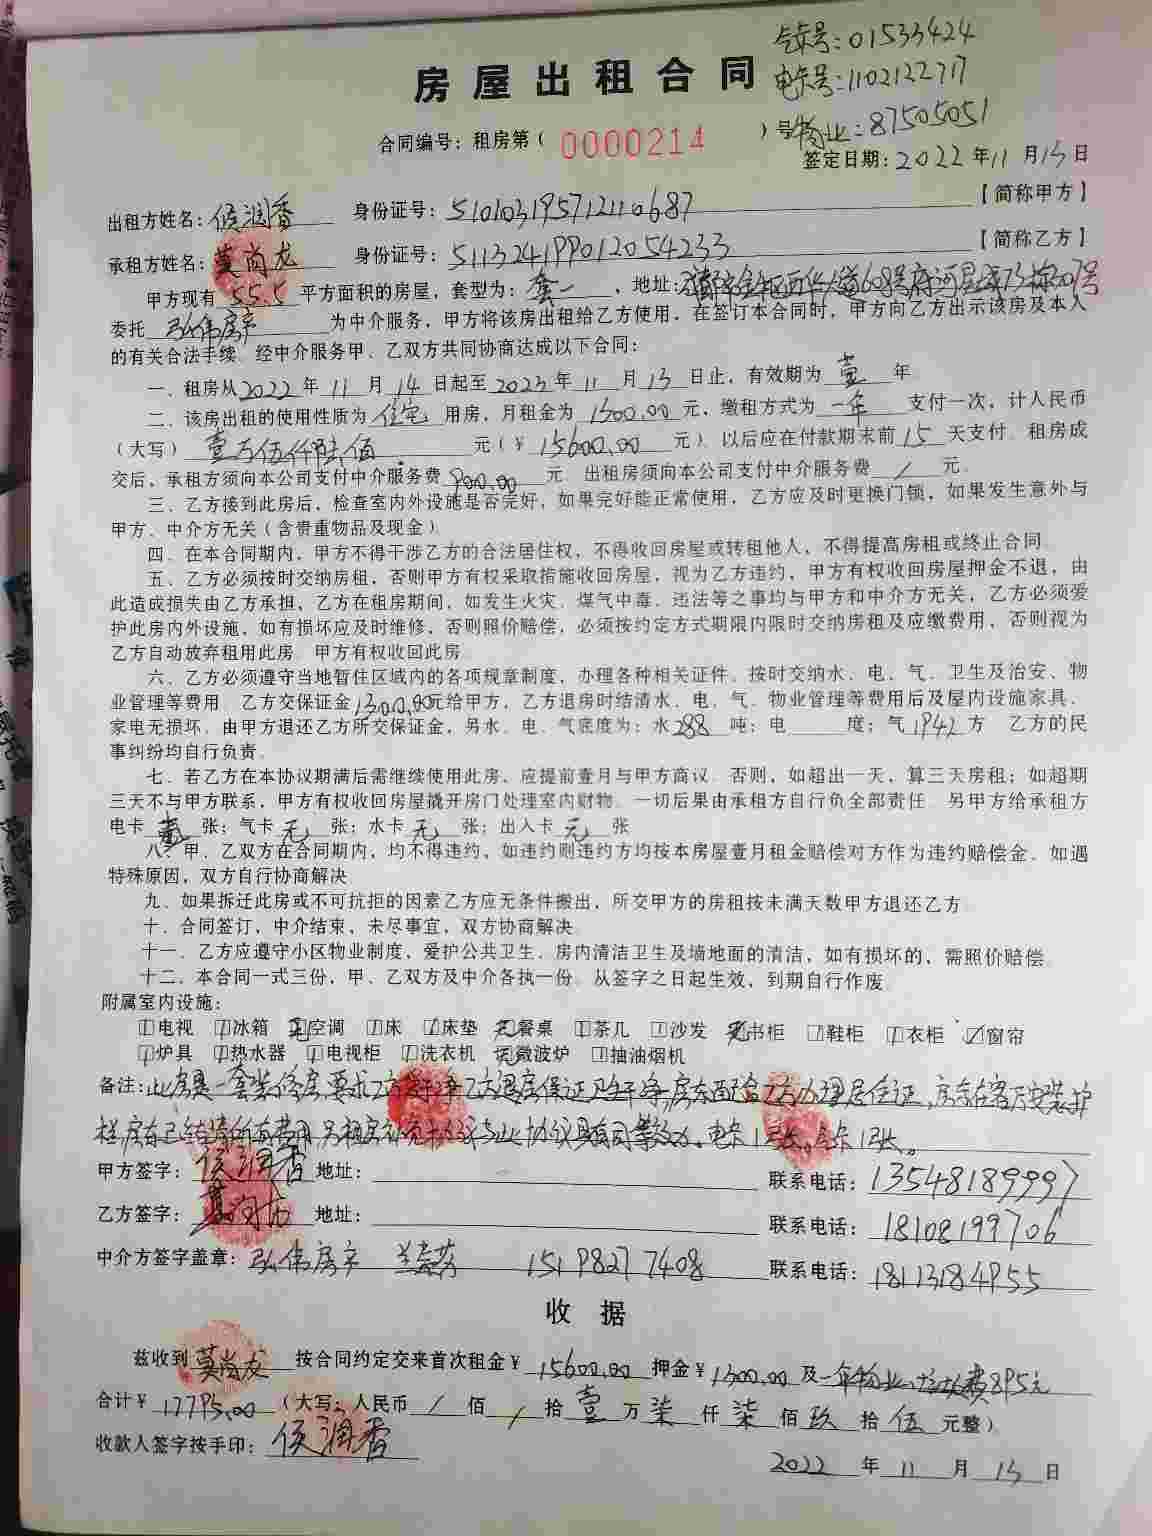 气卡号:01533424
房屋出租合同
电卡号:1102122717
合同编号：租房第（ 0000214 ）号
物业:87505051
签定日期：2022年11月13日
出租方姓名：侯润香 身份证号：510103195712110687 【简称甲方】
承租方姓名：莫尚龙 身份证号：511324199012054233 【简称乙方】
甲方现有 55.5 平方面积的房屋，套型为：套一 ，地址：
委托 弘伟房产 为中介服务，甲方将该房出租给乙方使用，在签订本合同时，甲方向乙方出示该房及本人
的有关合法手续。经中介服务甲、乙双方共同协商达成以下合同：
一、租房从2022年11月14日起至2023年11月13日止，有效期为 壹 年
二、该房出租的使用性质为 住宅 用房，月租金为 1300.00 元，缴租方式为 一年 支付一次，计人民币
（大写）壹万伍仟陆佰 元（￥15600.00 元）以后应在付款期末前 15 天支付。租房成
交后，承租方须向本公司支付中介服务费 900.00 元。出租房须向本公司支付中介服务费 / 元。
三、乙方接到此房后，检查室内外设施是否完好，如果完好能正常使用，乙方应及时更换门锁，如果发生意外与
甲方、中介方无关（含贵重物品及现金）
四、在本合同期内，甲方不得干涉乙方的合法居住权，不得收回房屋或转租他人，不得提高房租或终止合同。
五、乙方必须按时交纳房租，否则甲方有权采取措施收回房屋，视为乙方违约，甲方有权收回房屋押金不退，由
此造成损失由乙方承担，乙方在租房期间，如发生火灾、煤气中毒、违法等之事均与甲方和中介方无关，乙方必须爱
护此房内外设施，如有损坏应及时维修，否则照价赔偿，必须按约定方式期限内限时交纳房租及应缴费用，否则视为
乙方自动放弃租用此房。甲方有权收回此房。
六、乙方必须遵守当地暂住区域内的各项规章制度，办理各种相关证件。按时交纳水、电、气、卫生及治安、物
业管理等费用。乙方交保证金1300.00元给甲方，乙方退房时结清水、电、气、物业管理等费用后及屋内设施家具、
家电无损坏。由甲方退还乙方所交保证金，另水、电、气底度为：水288 吨；电 度；气1942方 乙方的民
事纠纷均自行负责。
七、若乙方在本协议期满后需继续使用此房，应提前壹月与甲方商议。否则，如超出一天，算三天房租；如超期
三天不与甲方联系，甲方有权收回房屋撬开房门处理室内财物。一切后果由承租方自行负全部责任。另甲方给承租方
电卡 壹 张；气卡 无 张；水卡 无 张；出入卡 无 张
八、甲、乙双方在合同期内，均不得违约，如违约则违约方均按本房屋壹月租金赔偿对方作为违约赔偿金。如遇
特殊原因，双方自行协商解决。
九、如果拆迁此房或不可抗拒的因素乙方应无条件搬出，所交甲方的房租按未满天数甲方退还乙方。
十、合同签订，中介结束，未尽事宜，双方协商解决。
十一、乙方应遵守小区物业制度，爱护公共卫生，房内清洁卫生及墙地面的清洁，如有损坏的，需照价赔偿。
十二、本合同一式三份，甲、乙双方及中介各执一份。从签字之日起生效，到期自行作废。
附属室内设施：
电视 冰箱 无空调 床 床垫 无餐桌 茶几 沙发 无书柜 鞋柜 衣柜 窗帘
炉具 热水器 电视柜 洗衣机 无微波炉 抽油烟机
备注：此房是一套装修房,要求乙方爱干净,乙方退房保证卫生干净,房东配合乙方办理居住证,房东在客厅安装护
栏,房东已结清所有费用,另租房补充协议与此协议具有同等效力。电卡1张。气卡1张。
甲方签字：侯润香 地址： 联系电话：13548189997
乙方签字： 地址： 联系电话：18108199706
中介方签字盖章：弘伟房产 兰 15198277408 联系电话：18113184955
收据
兹收到 莫尚龙 按合同约定交来首次租金￥15600.00 押金￥1300.00 及一年物业、垃圾费895元
合计￥17795.00（大写：人民币 / 佰 / 拾 壹 万 柒 仟 柒 佰 玖 拾 伍 元整）
收款人签字按手印：侯润香
2022 年 11 月 13 日